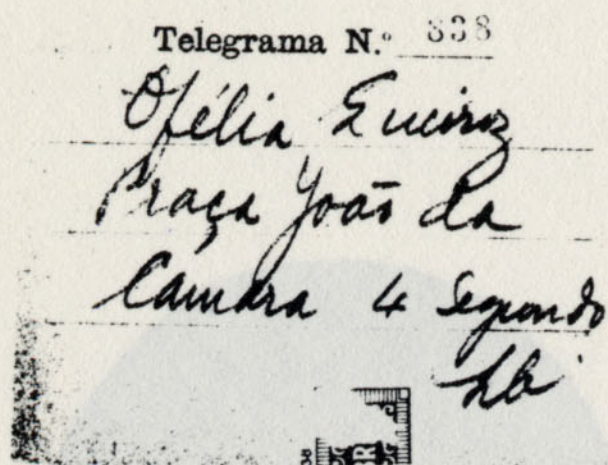 Telegrama N.º 338
Ofélia Queiroz
Praça João da
Câmara 4 Segundo